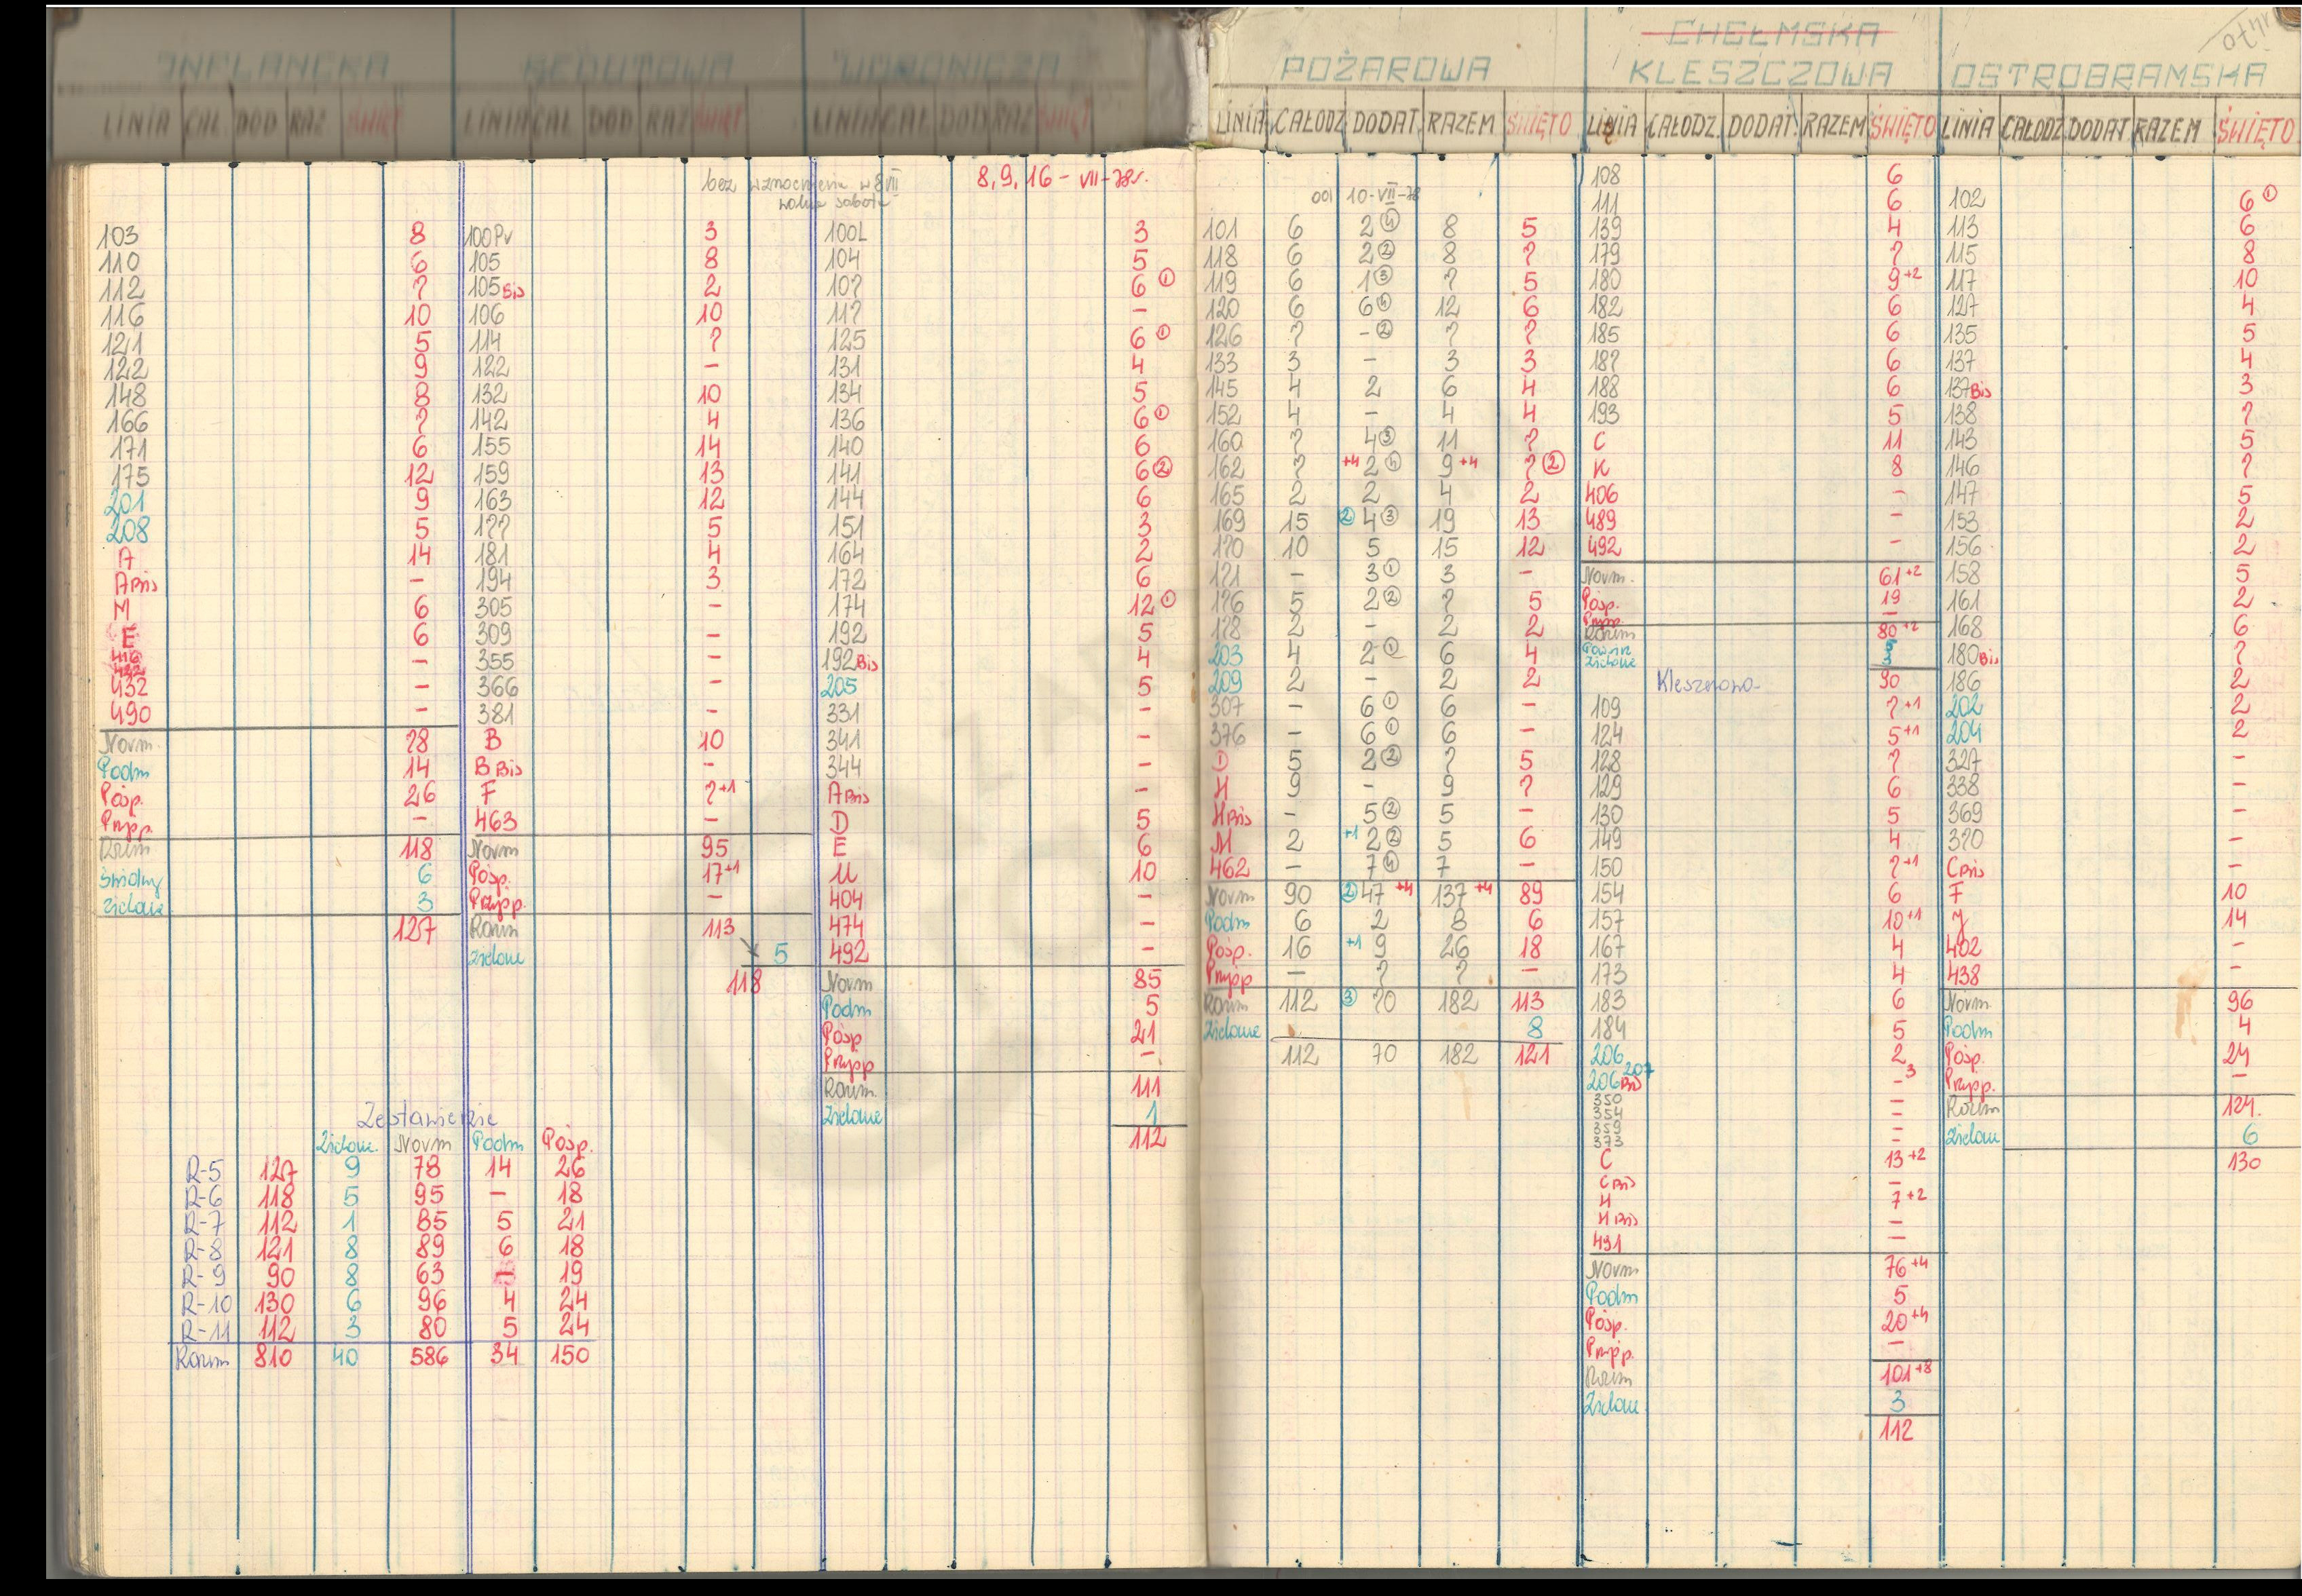 INFLANCKA
LINIA CAŁ DOD RAZ ŚWIĘT
103 8
110 6
112 7
116 10
121 5
122 9
148 8
166 7
171 6
175 12
201 9
208 5
A 14
A Bis -
M 6
E 6
-
432 -
490 -
Norm. 78
Podm 14
Posp. 26
Przysp. -
Razem 118
6
Zielone 3
127
REDUTOWA
LINIA CAŁ DOD RAZ ŚWIĘT
bez wzmocnienia w 8 VII
wolna sobota
100Pr 3
105 8
105 Bis 2
106 10
114 7
122 -
132 10
142 4
155 14
159 13
163 12
177 5
181 4
194 3
305 -
309 -
355 -
366 -
381 -
B 10
B Bis -
F 7+1
463 -
Norm 95
Posp. 17+1
Przysp. -
Razem 113
Zielone 5
118
WORONICZA
LINIA CAŁ DOD RAZ ŚWIĘT
8, 9, 16 - VII - 78r.
100L 3
104 5
107 6 ①
117 -
125 6 ①
131 4
134 5
136 6 ①
140 6
141 6 ②
144 6
151 3
164 2
172 6
174 12 ①
192 5
192 Bis 4
205 5
331 -
341 -
344 -
A Bis -
D 5
E 6
U 10
404 -
474 -
492 -
Norm 85
Podm 5
Posp 21
Przysp -
Razem. 111
Zielone 1
112
Zestawienie
Zielone. Norm Podm Posp.
R-5 127 9 78 14 26
R-6 118 5 95 - 18
R-7 112 1 85 5 21
R-8 121 8 89 6 18
R-9 90 8 63 - 19
R-10 130 6 96 4 24
R-11 112 3 80 5 24
Razem 810 40 586 34 150
POŻAROWA
LINIA CAŁODZ DODAT. RAZEM ŚWIĘTO
od 10-VII-78
101 6 2 ④ 8 5
118 6 2 ② 8 7
119 6 1 ③ 7 5
120 6 6 ④ 12 6
126 7 - ② 7 7
133 3 - 3 3
145 4 2 6 4
152 4 - 4 4
160 7 4 ③ 11 7
162 7 +4 2 ④ 9 +4 7 ②
165 2 2 4 2
169 15 ② 4 ③ 19 13
170 10 5 15 12
171 - 3 ① 3 -
176 5 2 ② 7 5
178 2 - 2 2
203 4 2 ① 6 4
209 2 - 2 2
307 - 6 ① 6 -
376 - 6 ① 6 -
D 5 2 ② 7 5
H 9 - 9 7
H Bis - 5 ② 5 -
M 2 +1 2 ② 5 6
462 - 7 ④ 7 -
Norm 90 ② 47 +4 137 +4 89
Podm 6 2 8 6
Posp. 16 +1 9 26 18
Przysp - 7 7 -
Razem 112 ③ 70 182 113
Zielone 8
112 70 182 121
CHEŁMSKA
KLESZCZOWA
LINIA CAŁODZ. DODAT. RAZEM ŚWIĘTO
108 6
111 6
139 4
179 7
180 9+2
182 6
185 6
187 6
188 6
193 5
C 11
K 8
406 -
489 -
492 -
Norm. 61+2
Posp. 19
Przysp. -
Razem 80+2
5
Zielone 3
90
Kleszczowa
109 7+1
124 5+1
128 7
129 6
130 5
149 4
150 7+1
154 6
157 10+1
167 4
173 4
183 6
184 5
206 2
206 Bis 207 - 3
350 -
354 -
359 -
373 -
C 13+2
C Bis -
H 7+2
H Bis -
491 -
Norm 76+4
Podm 5
Posp. 20+4
Przysp. -
Razem 101+8
Zielone 3
112
OSTROBRAMSKA
LINIA CAŁODZ DODAT RAZEM ŚWIĘTO
102 6 ①
113 6
115 8
117 10
127 4
135 5
137 4
137 Bis 3
138 7
143 5
146 7
147 5
153 2
156 2
158 5
161 2
168 6
180 Bis 7
186 2
202 2
204 2
327 -
338 -
369 -
370 -
C Bis -
F 10
J 14
402 -
438 -
Norm. 96
Podm 4
Posp. 24
Przysp. -
Razem 124.
Zielone 6
130